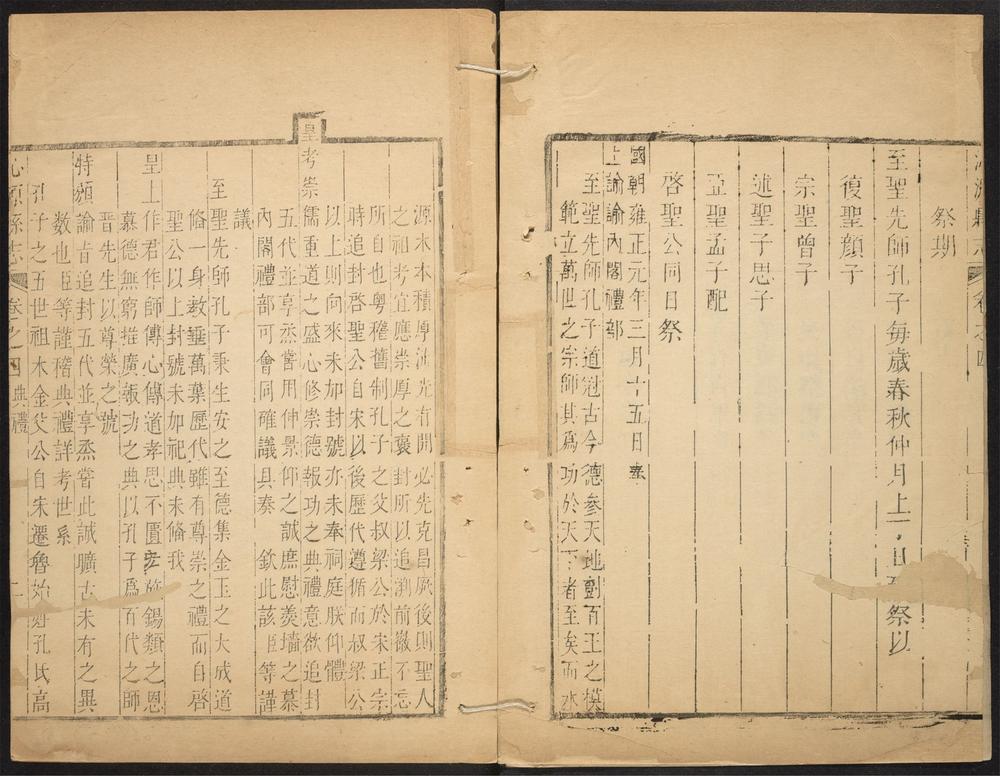 祭期
至聖先師孔子每歲春秋仲月上丁日致祭以
復聖顏子
宗聖曾子
述聖子思子
亞聖孟子配
啓聖公同日祭
國朝雍正元年三月十五日奉
上諭諭內閣禮部
至聖先師孔子道冠古今德參天地創百王之模
範立萬世之宗師其爲功於天下者至矣而水
源木本積厚流光有開必先克昌厥後則聖人
之祖考宜應崇厚之褒封所以追溯前徽不忘
所自也粵稽舊制孔子之父叔梁公於宋正宗
時追封啓聖公自宋以後歷代遵循而叔梁公
以上則向來未加封號亦未奉祠庭朕仰體
皇考崇儒重道之盛心修崇德報功之典禮意欲追封
五代並享烝嘗用伸景仰之誠庶慰羹墻之慕
內閣禮部可會同確議具奏 欽此該臣等謹
議
至聖先師孔子秉生安之至德集金玉之大成道
備一身教垂萬葉歷代雖有尊崇之禮而自啓
聖公以上封號未加祀典未備我
皇上作君作師傳心傳道孝思不匱宏施錫類之恩
慕德無窮推廣報功之典以孔子爲百代之師
晉先生以尊榮之號
特頒諭旨追封五代並享烝嘗此誠曠古未有之異
數也臣等謹稽典禮詳考世系
孔子之五世祖木金父公自宋遷魯始姓孔氏高
沁源縣志 卷之四 典禮 二